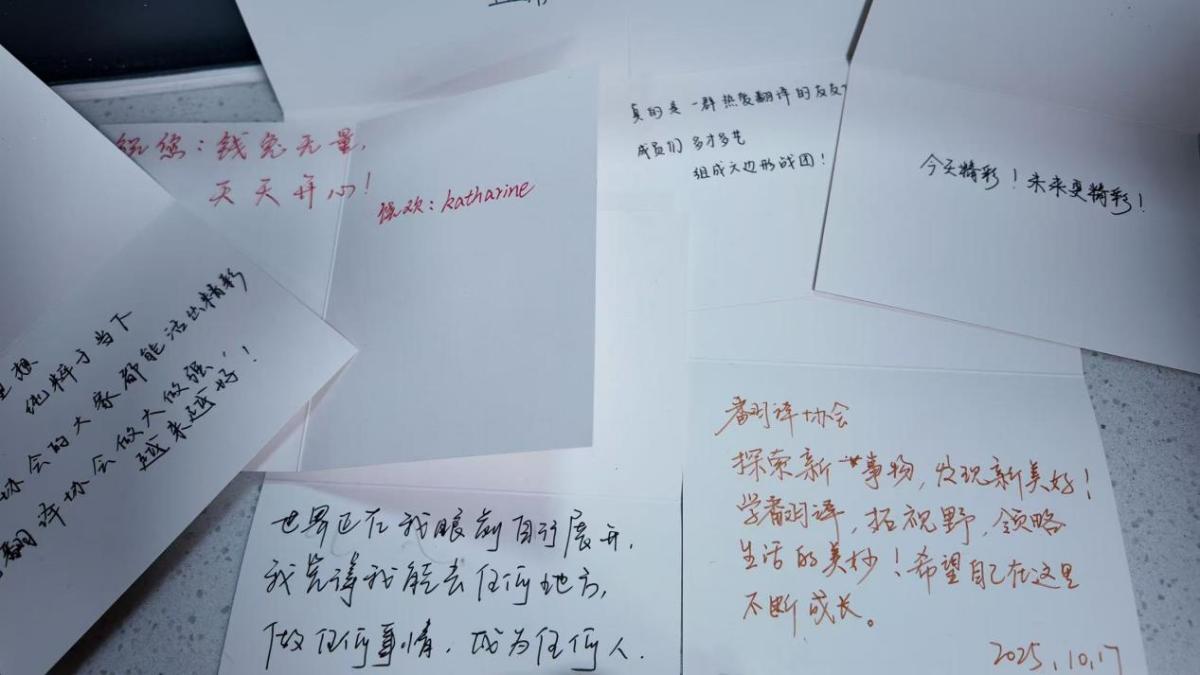 祝您：钱兔无量，
天天开心！
祝欢：katharine
真的是一群热爱翻译的友友
成员们多才多艺
组成六边形战团！
今天精彩！未来更精彩！
想
地粹于当下
协会的大家都能活出精彩
翻译协会做大做强，
越来越好！
世界正在我眼前自行展开，
我觉得我能去任何地方，
做任何事情，成为任何人．
翻译协会
探索新事物，发现新美好！
学翻译，拓视野，领略
生活的美妙！希望自己在这里
不断成长。
2025.10.17